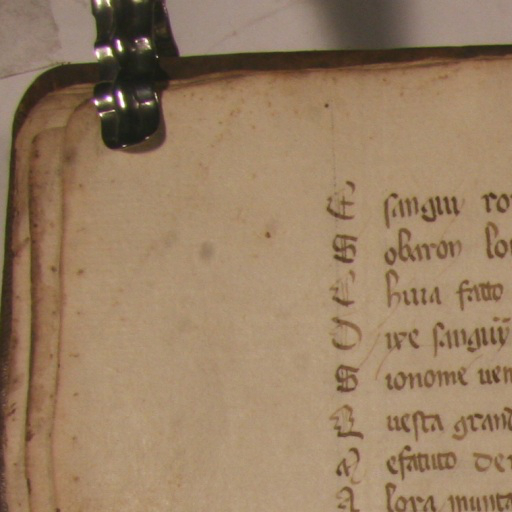 E sangui ro
S obaron lo
C hiua fatto
D ixe sanguȳ
S ionome uen
Q uesta grand
M efatuto de
A lora munta